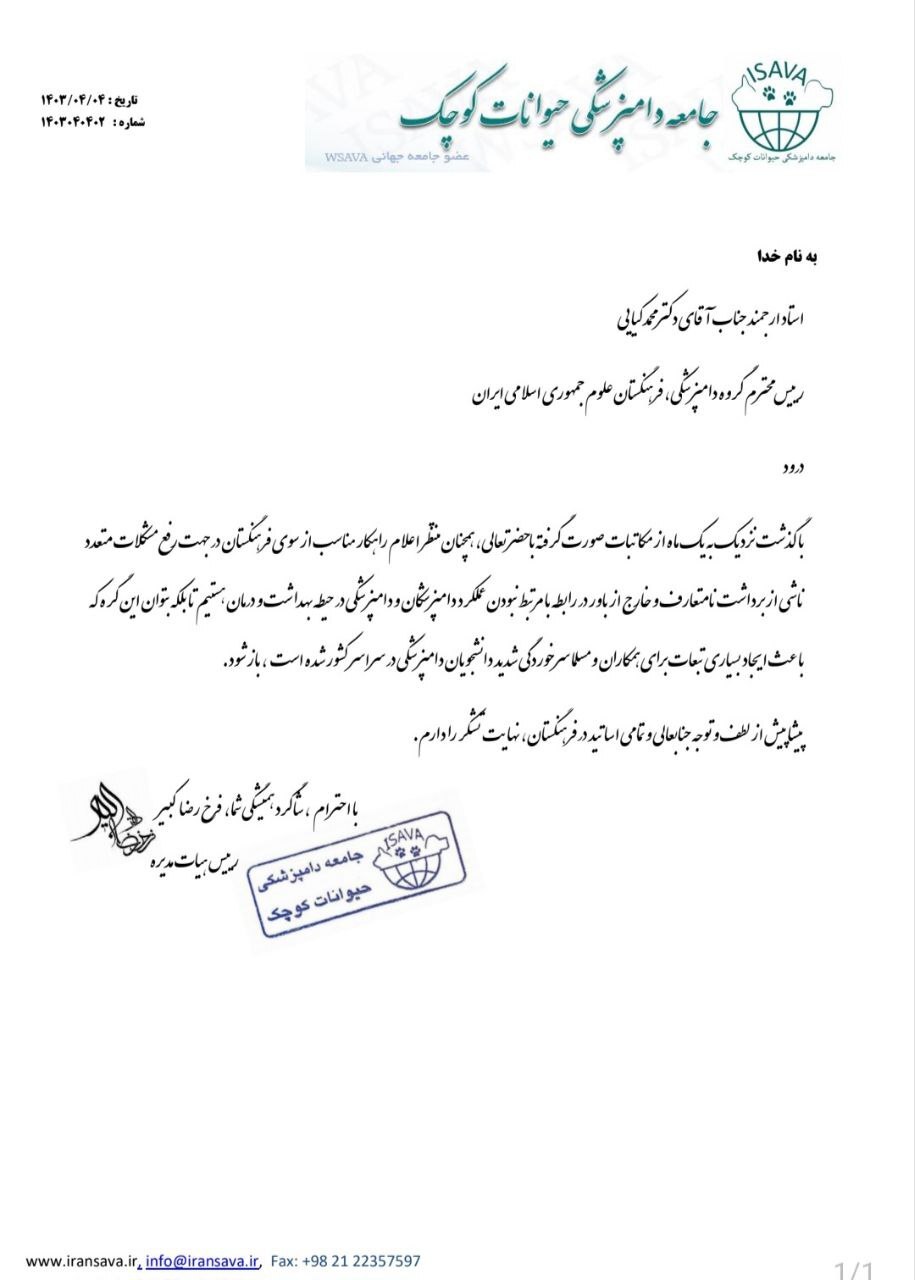 تاریخ : ۱۴۰۳/۰۴/۰۴
شماره : ۱۴۰۳۰۴۰۴۰۲
جامعه دامپزشکی حیوانات کوچک
عضو جامعه جهانی WSAVA
ISAVA
جامعه دامپزشکی حیوانات کوچک
به نام خدا
استاد ارجمند جناب آقای دکتر محمد کیایی
رییس محترم گروه دامپزشکی، فرهنگستان علوم جمهوری اسلامی ایران
درود
با گذشت نزدیک به یک ماه از مکاتبات صورت گرفته با حضرتعالی، همچنان منتظر اعلام راهکار مناسب از سوی فرهنگستان در جهت رفع مشکلات متعدد
ناشی از برداشت نامتعارف و خارج از باور در رابطه با مرتبط نبودن عملکرد دامپزشکان و دامپزشکی در حیطه بهداشت و درمان هستیم تا بلکه بتوان این گره که
باعث ایجاد بسیاری تبعات برای همکاران و مسلما سرخوردگی شدید دانشجویان دامپزشکی در سراسر کشور شده است ، باز شود.
پیشاپیش از لطف و توجه جنابعالی و تمامی اساتید در فرهنگستان، نهایت تشکر را دارم.
با احترام ، شاگرد همیشگی شما، فرخ رضا کبیر
رییس هیات مدیره
ISAVA
جامعه دامپزشکی
حیوانات کوچک
www.iransava.ir, info@iransava.ir, Fax: +98 21 22357597
1/1